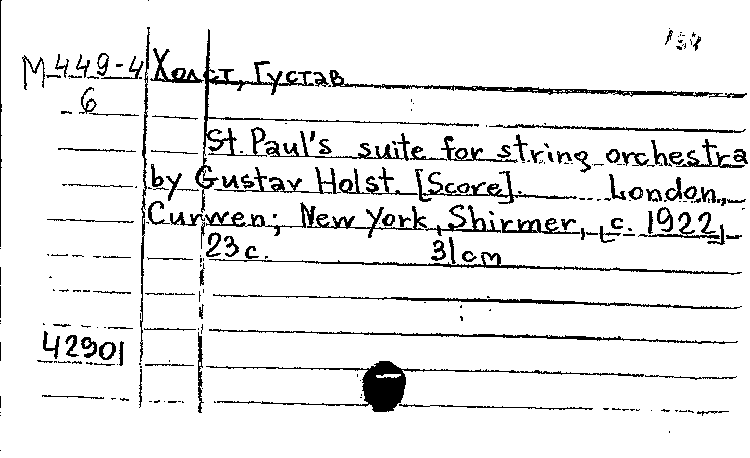 M 449-4 Холст, Густав
6
St. Paul's suite for string orchestra
by Gustav Holst. [Score]. London,
Curwen; New York, Shirmer, [c. 1922]
23c. 31cm
42901